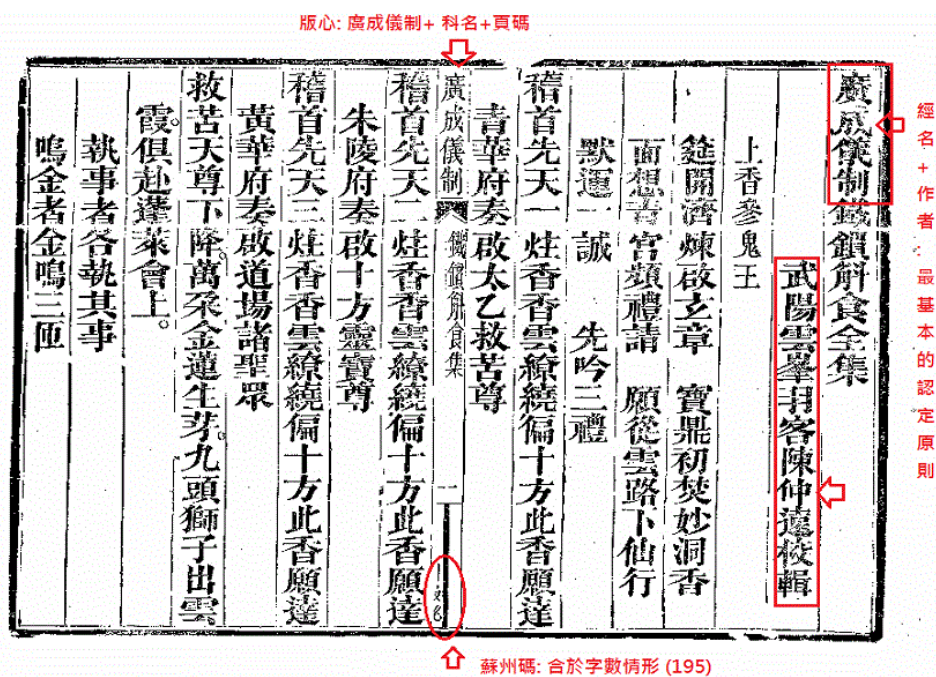 版心: 廣成儀制+ 科名+頁碼
經名+作者: 最基本的認定原則
廣成儀制鐵鎖斛食全集
武陽雲峯羽客陳仲遠校輯
上香參鬼王
筵開濟煉啟玄章 寶鼎初焚妙洞香
面想青宮頻禮請 願從雲路下仙行
默運一誠 先吟三禮
稽首先天一炷香香雲繚繞徧十方此香願達
青華府奏啟太乙救苦尊
廣成儀制 鐵鎖斛食集 一
稽首先天二炷香香雲繚繞徧十方此香願達
朱陵府奏啟十方靈寶尊
稽首先天三炷香香雲繚繞徧十方此香願達
黃華府奏啟道場諸聖眾
救苦天尊下降。萬朵金蓮生芽。九頭獅子出雲
霞。俱赴蓬萊會上。
執事者各執其事
鳴金者金鳴三匝
蘇州碼: 合於字數情形 (195)